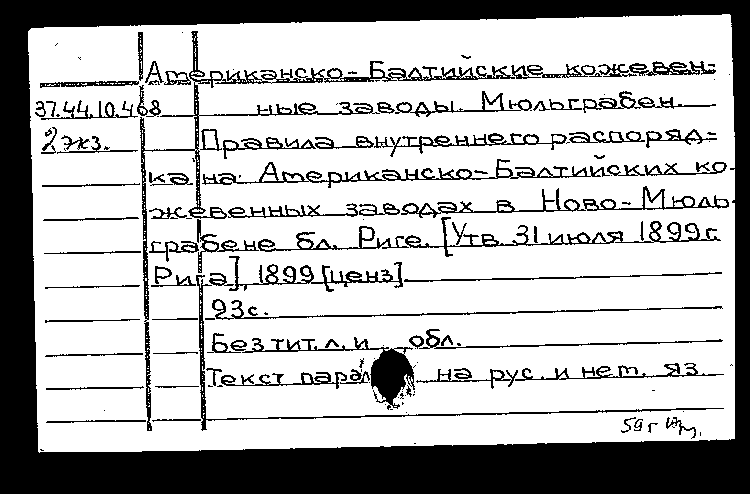 Американско-Балтийские кожевен-
37.44.10.468 ные заводы. Мюльграбен.
2 экз. Правила внутреннего распоряд-
ка на Американско-Балтийских ко-
жевенных заводах в Ново-Мюль-
грабене бл. Риге. [Утв. 31 июля 1899 г.
Рига], 1899 [ценз].
23 с.
Без тит. л. и обл.
Текст парал на рус. и нем. яз.
59 г